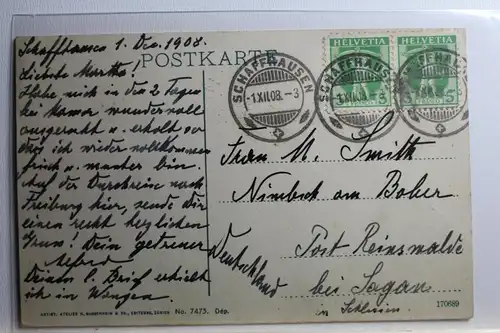 Schaffhausen 1. Dez. 1908.
POSTKARTE
Liebste Martha!
Habe mich in den 2 Tagen
bei wundervoll
ausgeruht u. erholt so
daß ich wieder vollkommen
frisch u. munter bin
Auf der Durchreise nach
Freiburg hier, sende Dir
einen recht herzlichen
Gruss! Dein getreuer
Alfred
Deinen l. Brief erhielt
ich in Wangen
HELVETIA
HELVETIA
5
5
SCHAFFHAUSEN
-1.XII.08.-3
SCHAFFHAUSEN
1.XII.08.-3
Frau M. Smith
Nimbsch am Bober
Post Reinswalde
bei Sagan
Schlesien
Deutschland
170689
No. 7475. Dép.